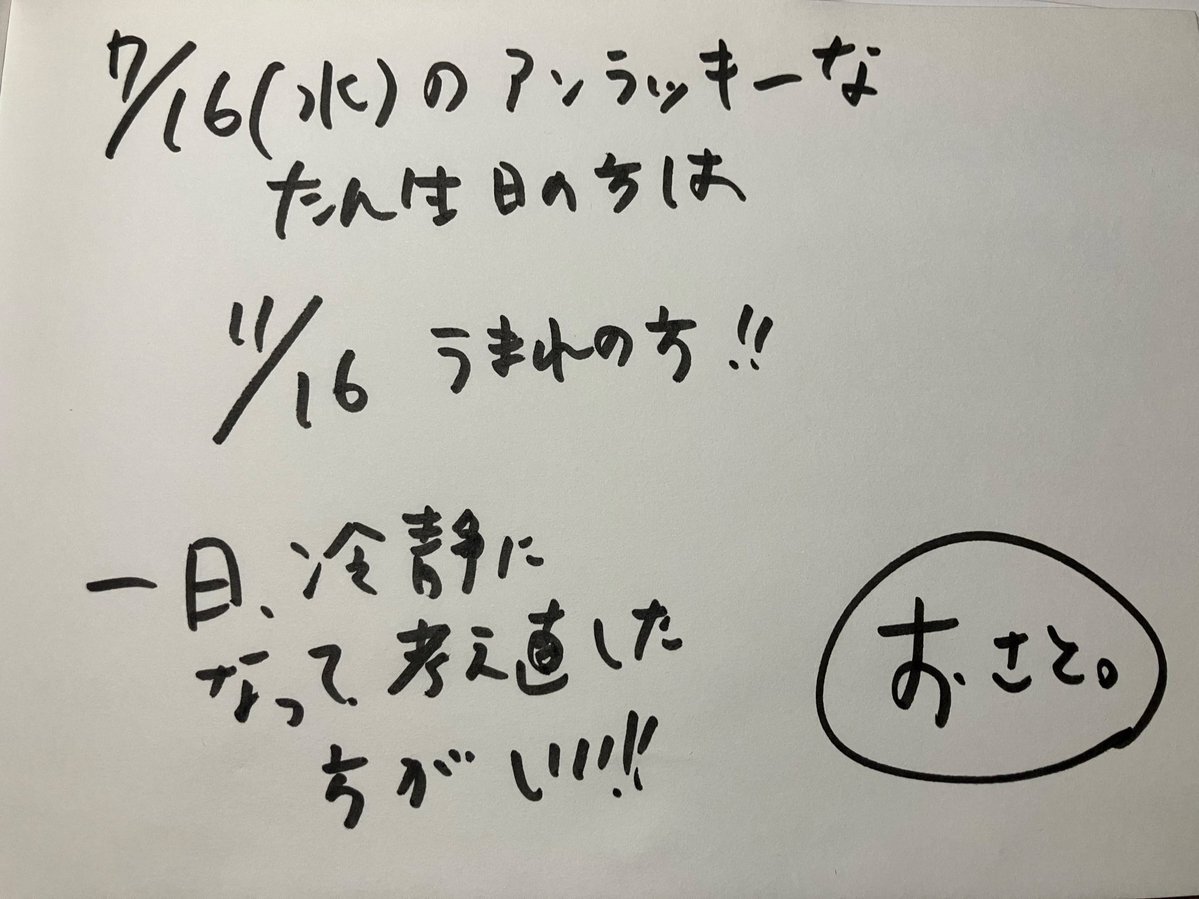 7/16(水)のアンラッキーな
たん生日の方は
11/16 うまれの方!!
一日、冷静に
なって考え直した
方がいい!!
おさと。